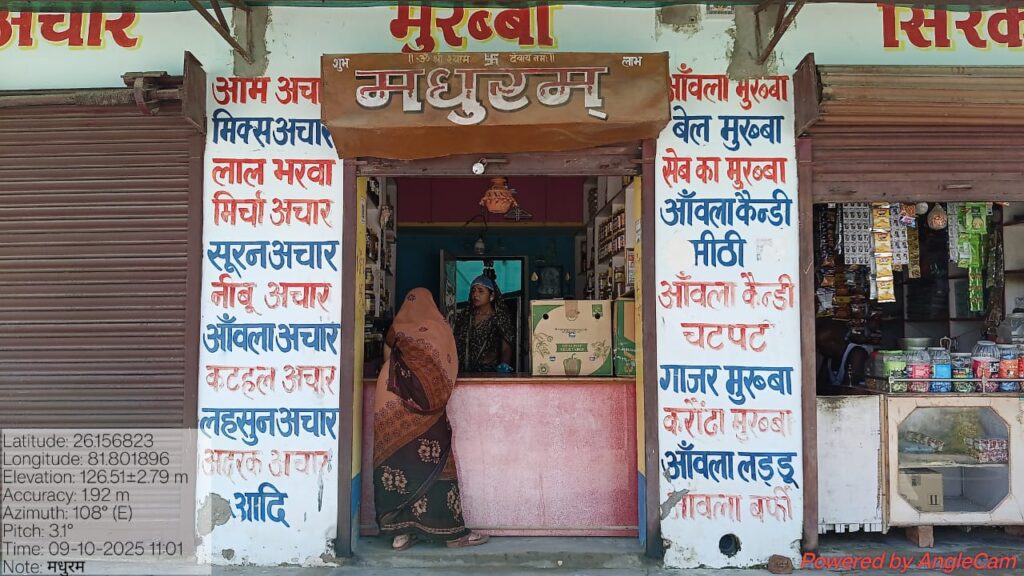 अचार
मुरब्बा
सिरका
शुभ
॥ ॐ श्री श्याम 卐 देवाय नमः ॥
लाभ
मधुरम्
आम अचा
मिक्स अचार
लाल भरवा
मिर्चा अचार
सूरन अचार
नीबू अचार
आँवला अचार
कटहल अचार
लहसुन अचार
अदरक अचार
आदि
आँवला मुरब्बा
बेल मुरब्बा
सेब का मुरब्बा
आँवला कैन्डी
मीठी
आँवला कैन्डी
चटपट
गाजर मुरब्बा
करौंदा मुरब्बा
आँवला लड्डू
आँवला बर्फी
Latitude: 26156823
Longitude: 81801896
Elevation: 126.51±2.79 m
Accuracy: 1.92 m
Azimuth: 108° (E)
Pitch: 3.1°
Time: 09-10-2025 11:01
Note: मधुरम
Powered by AngleCam